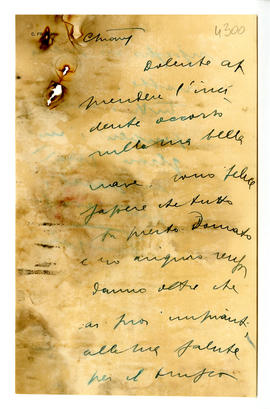 4300
Dolente ap
prendere l'inci
dente occorso
nella sua bella
nave. sono felice
sapere che tutto
fu presto Domato
e mi auguro
danno oltre che
ai suoi impianti
alla sua salute
per il